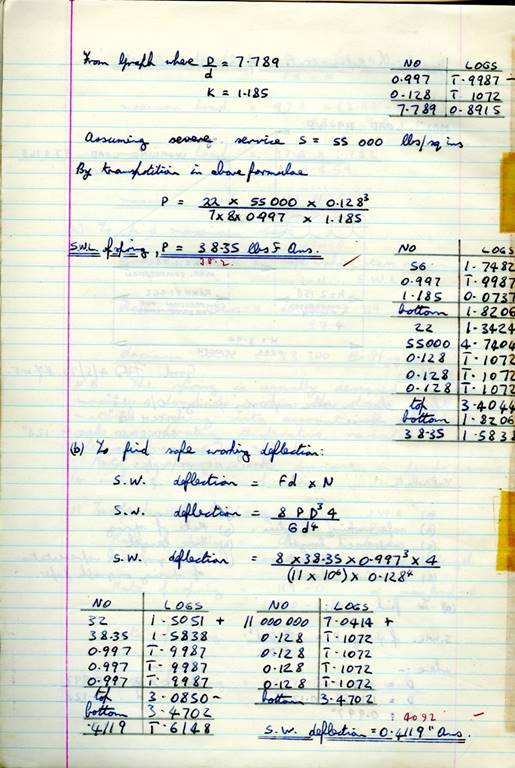 From Graph where D/d = 7.789
K = 1.185
NO | LOGS
0.997 | T.9987 -
0.128 | T.1072
7.789 | 0.8915
Assuming severe service S = 55 000 lbs/sq ins
By transposition in above formulae
P = 22 x 55000 x 0.128³
7 x 8 x 0.997 x 1.185
S.W.L. of spring, P = 38.35 lbs F Ans.
38.2
NO | LOGS
56 | 1.7482
0.997 | T.9987
1.185 | 0.0737
bottom | 1.8206
22 | 1.3424
55000 | 4.7404
0.128 | T.1072
0.128 | T.1072
0.128 | T.1072
top | 3.4044
bottom | 1.8206
38.35 | 1.5838
(b) To find safe working deflection:
S.W. deflection = Fd x N
S.W. deflection = 8 P D³ 4
G d⁴
S.W. deflection = 8 x 38.35 x 0.997³ x 4
(11 x 10⁶) x 0.128⁴
NO | LOGS
32 | 1.5051 +
38.35 | 1.5838
0.997 | T.9987
0.997 | T.9987
0.997 | T.9987
top | 3.0850 -
bottom | 3.4702
.4119 | T.6148
NO | LOGS
11 000 000 | 7.0414 +
0.128 | T.1072
0.128 | T.1072
0.128 | T.1072
0.128 | T.1072
bottom | 3.4702
: 4092
S.W. deflection = 0.4119" Ans.